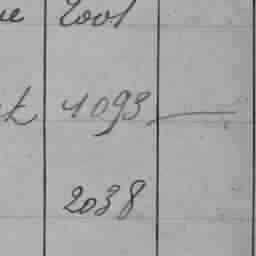 2001
4093
2038